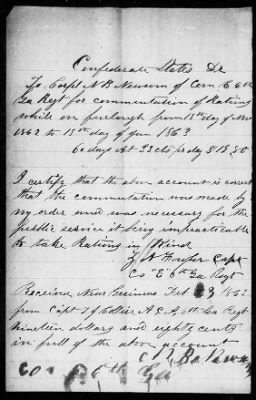 Confederate States Dr
To Corpl N B Newsom of Com E 6th
Ga Regt for commutation of Rations
while on furlough from 15th day of Nov
1862 to 15th day of Jan 1863
60 days At 33 cts pr day $19.80
I certify that the above account is correct
that the commutation was made by
my order and was necessary for the
public service it being impracticable
to take Rations in Kind
Capt
Co "E" 6th Ga Regt
Received Near Guiness Feb 1863
from Capt T J Collier A C S 6th Ga Regt
Nineteen dollars and eighty cents
in full of the above account
N B Newsom
Co 6th Ga